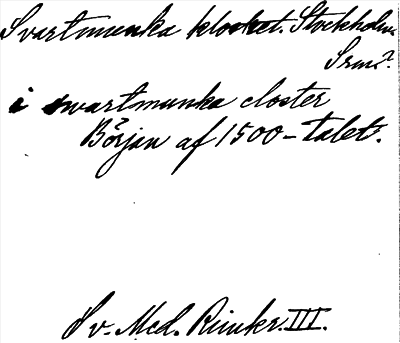 Svartmunka klostret. Stockholm.
Srm?.
i swartmunka closter
Början af 1500-talet.
Sv. Med. Rimkr. III.